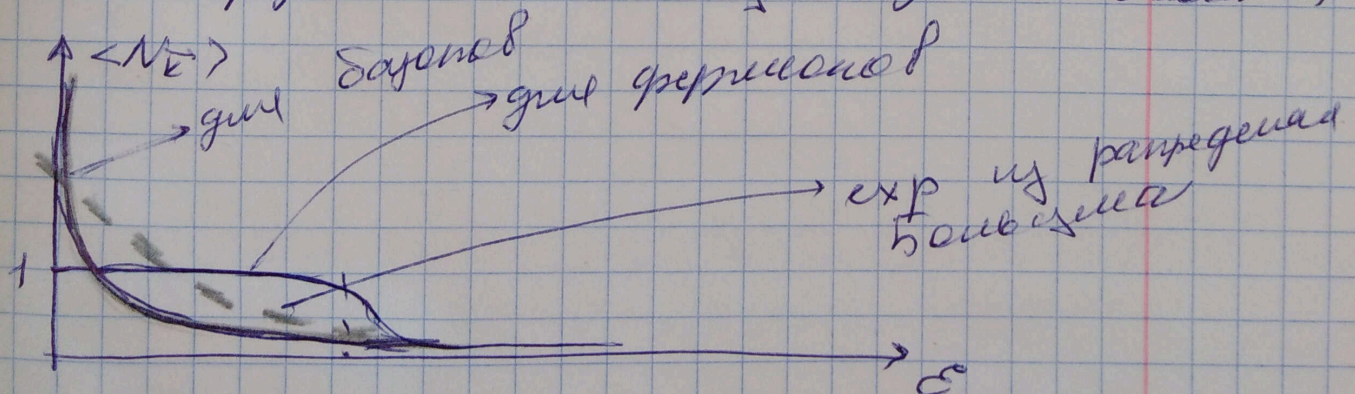 <N_k>
для бозонов
для фермионов
exp из рапределил
Больцма
1
ε